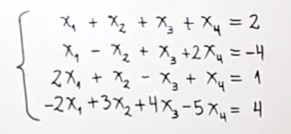 x₁ + x₂ + x₃ + x₄ = 2
x₁ - x₂ + x₃ + 2x₄ = -4
2x₁ + x₂ - x₃ + x₄ = 1
-2x₁ + 3x₂ + 4x₃ - 5x₄ = 4